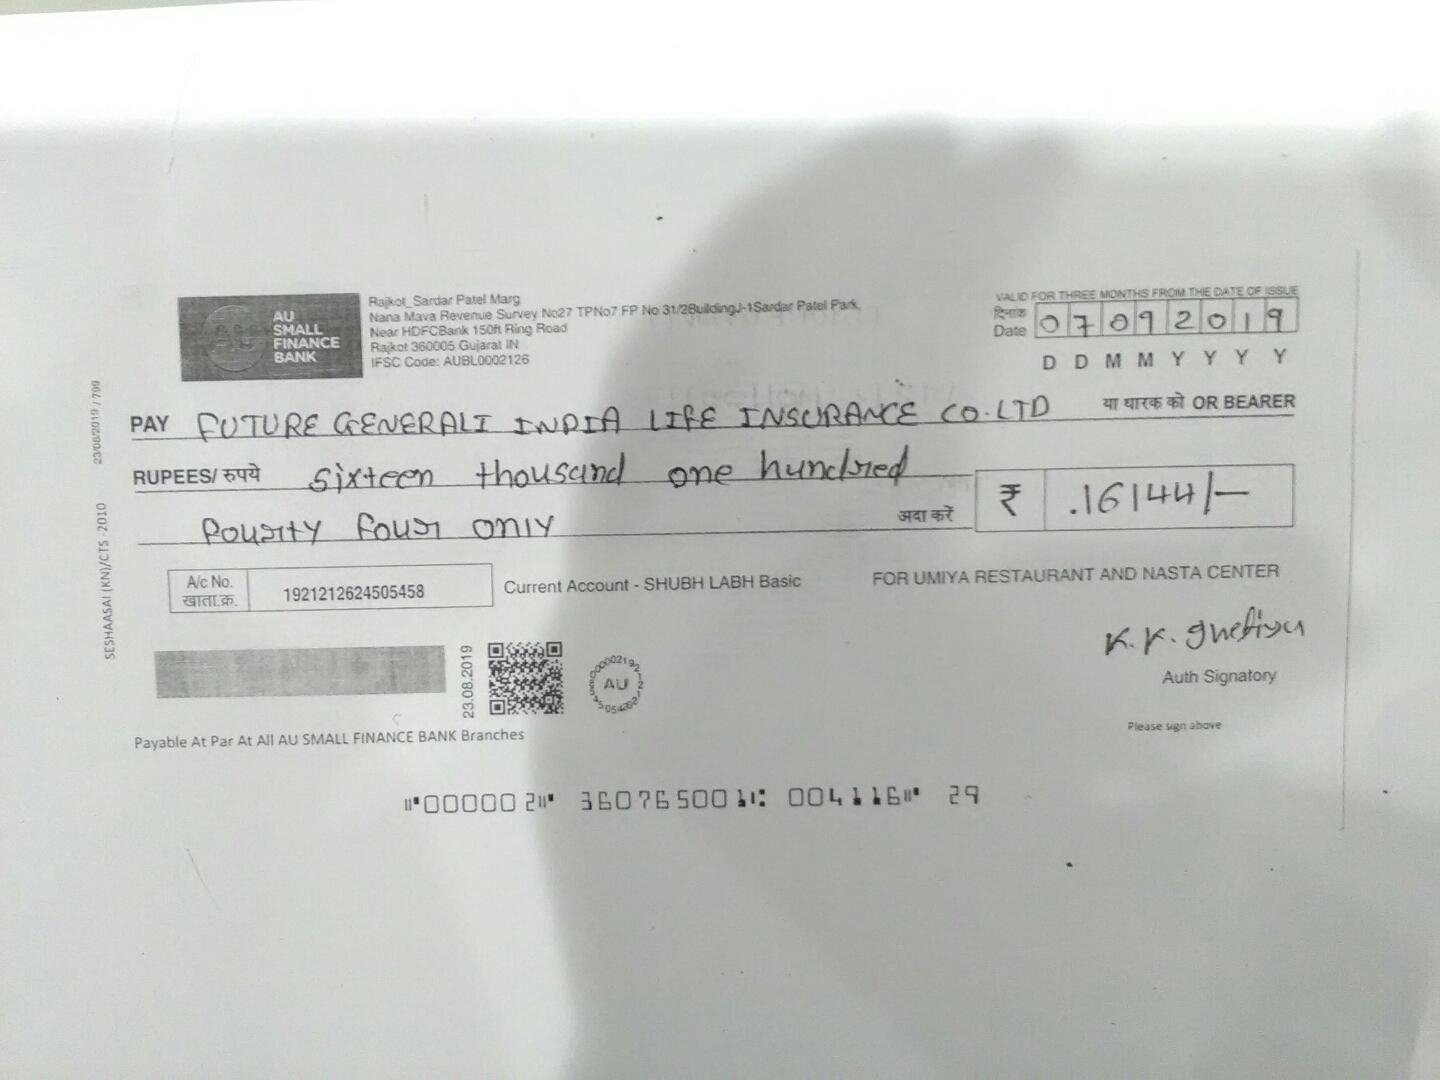 AU
SMALL
FINANCE
BANK
Rajkot_Sardar Patel Marg
Nana Mava Revenue Survey No27 TPNo7 FP No 31/2BuildingJ-1Sardar Patel Park,
Near HDFCBank 150ft Ring Road
Rajkot 360005 Gujarat IN
IFSC Code: AUBL0002126
VALID FOR THREE MONTHS FROM THE DATE OF ISSUE
दिनांक
Date 07092019
D D M M Y Y Y Y
PAY FUTURE GENERALI INDIA LIFE INSURANCE CO.LTD या धारक को OR BEARER
RUPEES/ रुपये sixteen thousand one hundred
fourty four only अदा करें ₹ .16144/-
A/c No.
खाता.क्र. 1921212624505458 Current Account - SHUBH LABH Basic FOR UMIYA RESTAURANT AND NASTA CENTER
K. K.
Auth Signatory
Please sign above
23.08.2019
AU
Payable At Par At All AU SMALL FINANCE BANK Branches
⑈000002⑈ 360765001⑆ 004116⑈ 29
SESHAASAI (KN)/CTS -2010 23/08/2019 / 799